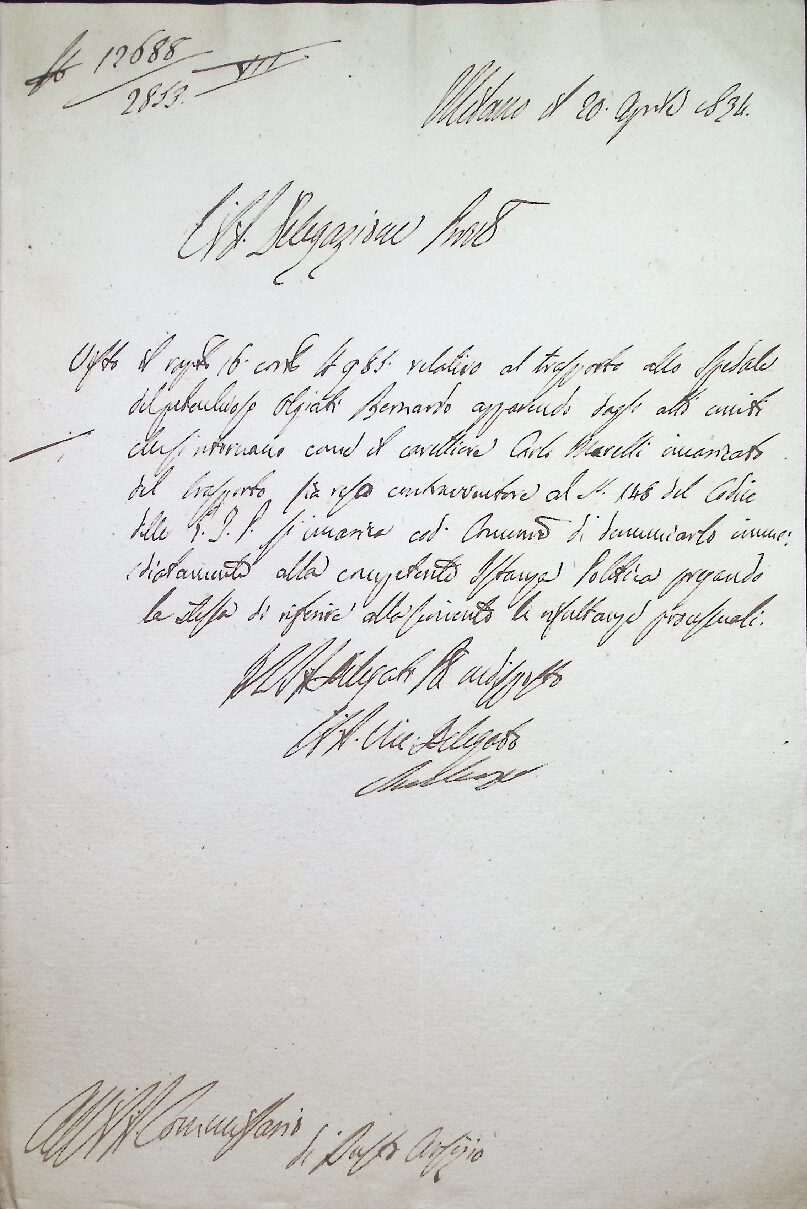 N 12688 / 2853 VII
Milano il 20. Aprile 1834.
L'I. R. Delegazione Prov.
Visto il rapp.to 16. corr.te N 985. relativo al trasporto allo Spedale
del Olgiati Bernardo apparendo dagli atti uniti
che si ritornano come il cavalliere Carlo Marelli incaricato
del trasporto sia reso contravventore al N. 148 del Codice
delle G. T. P. si incarica cod. di denunciarlo imme:
diatamente alla competente Istanza Politica pregando
la stessa di riferire alla le risultanze processuali.
Delegato indisposto
L'I. R. Vice Delegato
All'I. R. Commissario
di Busto Arsizio